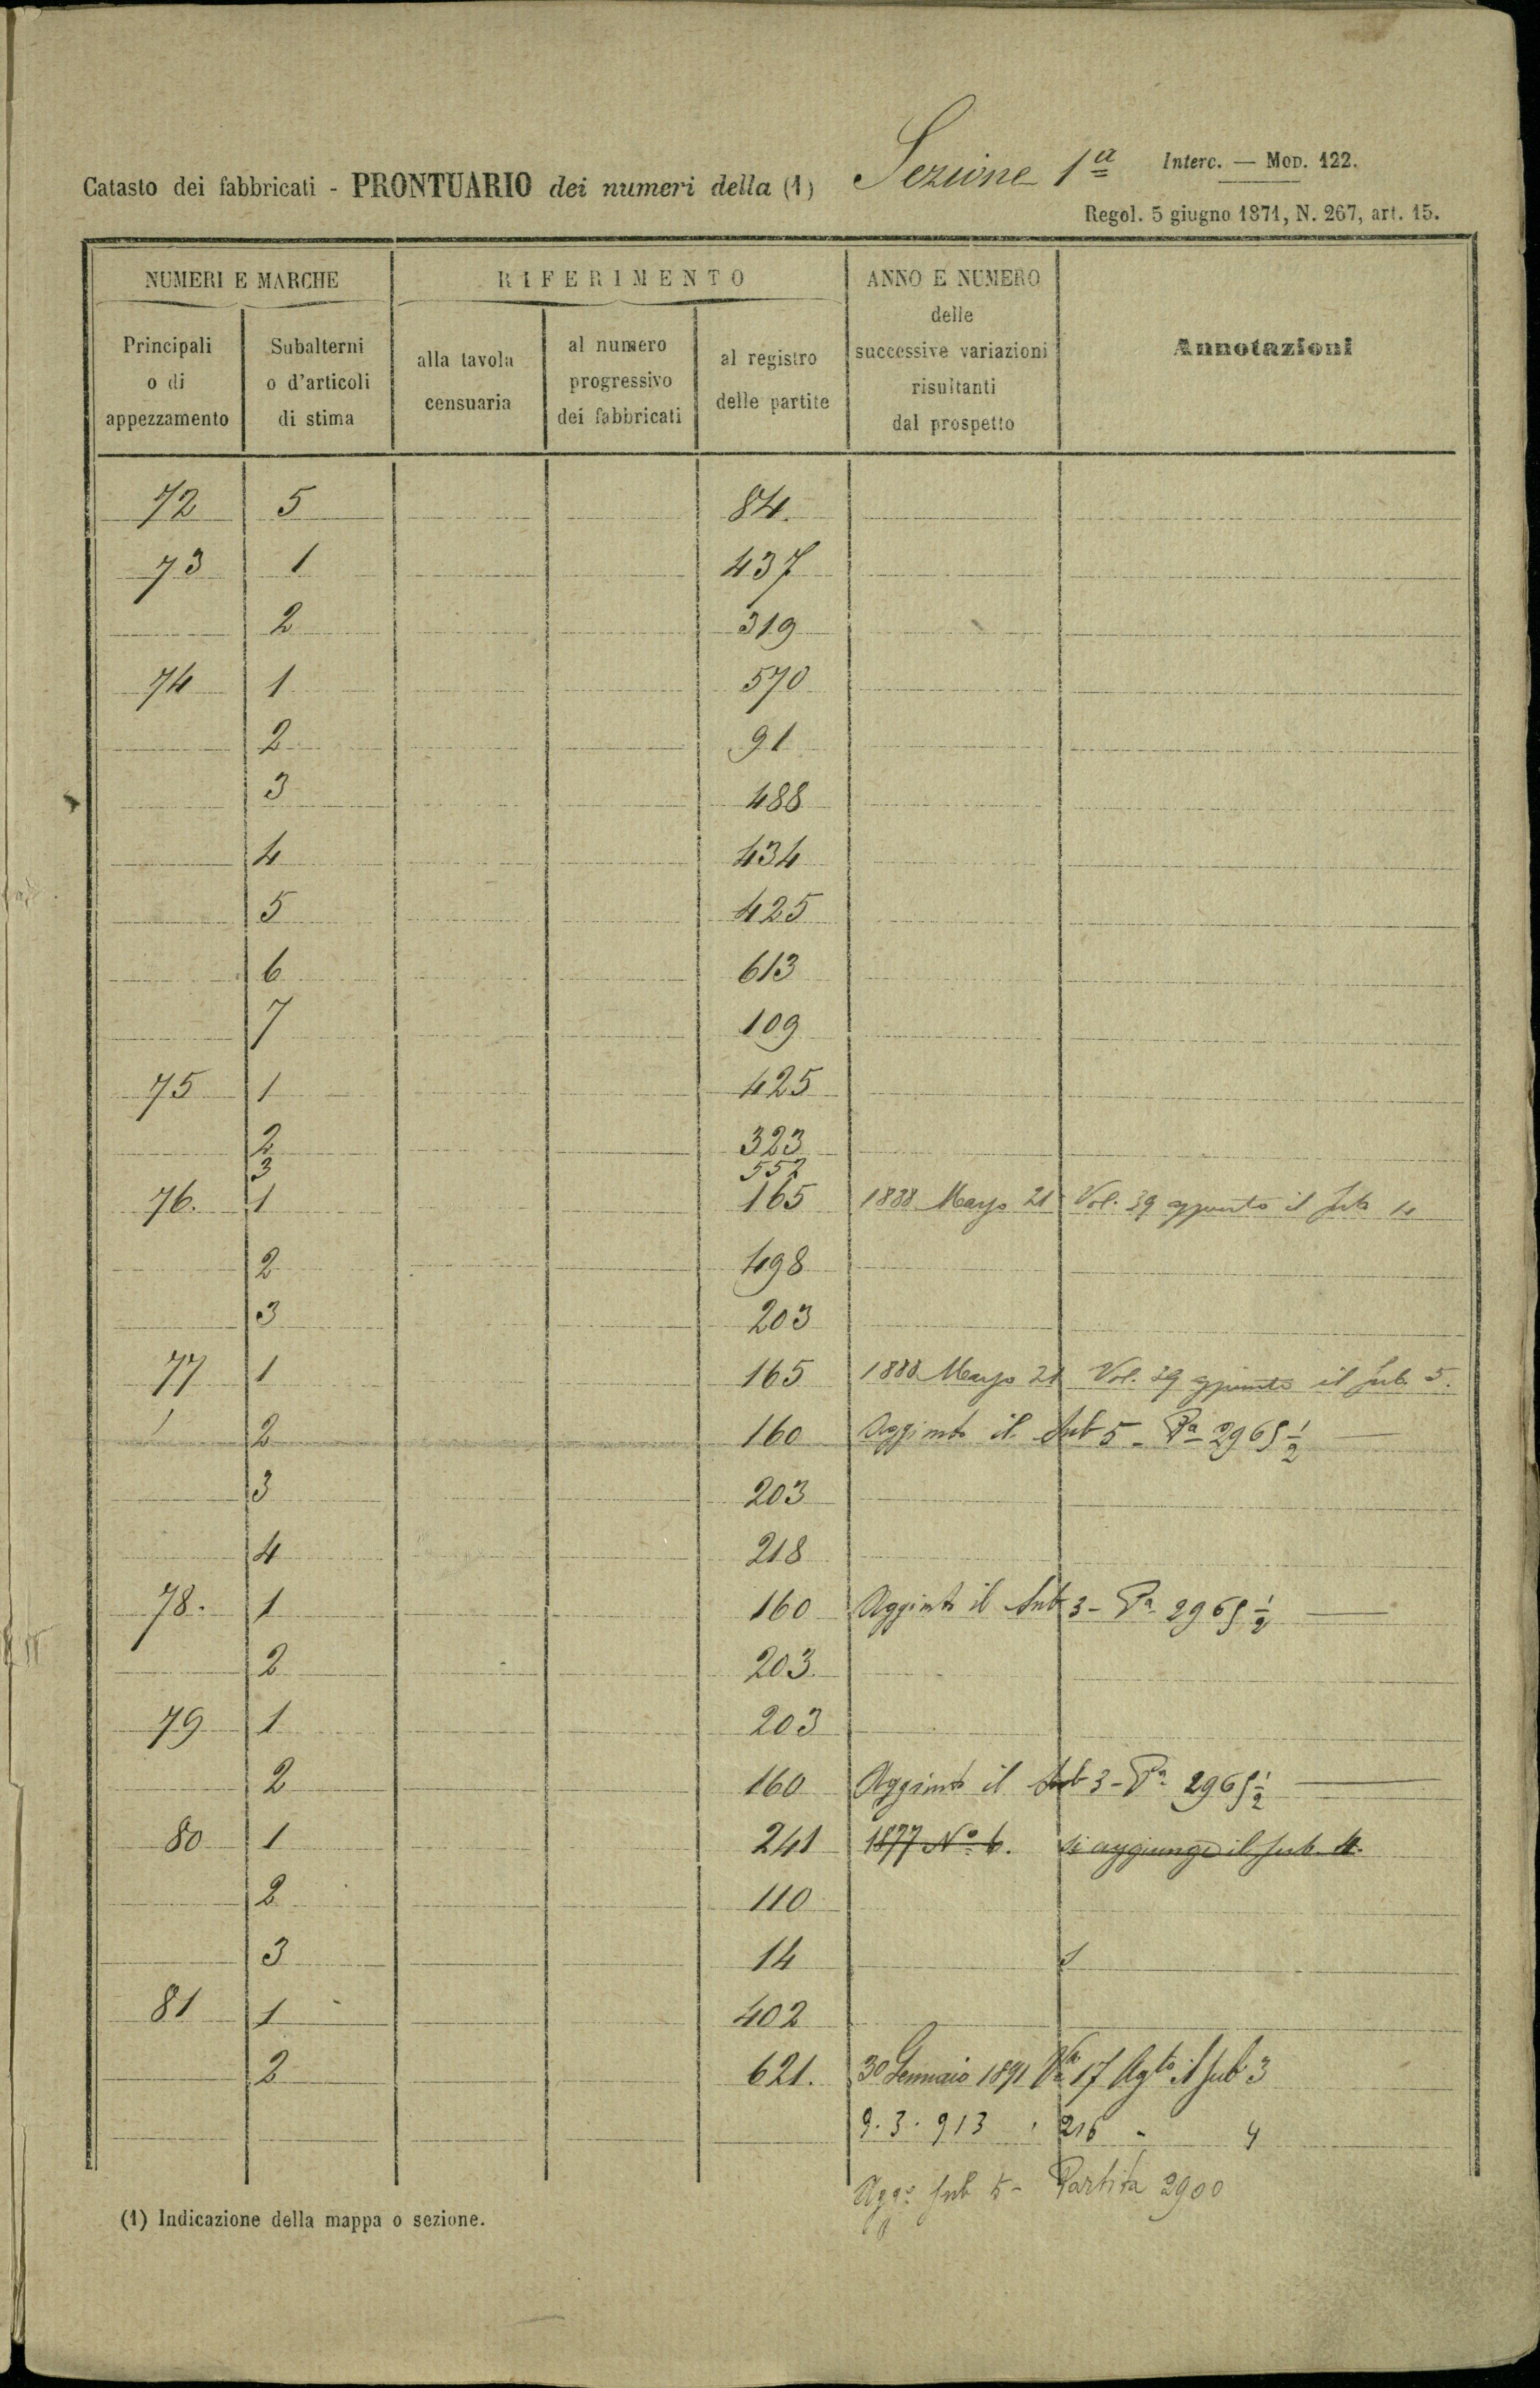 Sezione 1ª
Interc. — Mod. 122.
Catasto dei fabbricati - PRONTUARIO dei numeri della (1)
Regol. 5 giugno 1871, N. 267, art. 15.
NUMERI E MARCHE
RIFERIMENTO
ANNO E NUMERO
delle
successive variazioni
risultanti
dal prospetto
Annotazioni
Principali
o di
appezzamento
Subalterni
o d'articoli
di stima
alla tavola
censuaria
al numero
progressivo
dei fabbricati
al registro
delle partite
72 5 84.
73 1 437
2 319
74 1 570
2 91
3 488
4 434
5 425
6 613
7 109
75 1 425
2 323
3 552
76. 1 165 1888 Marzo 21 Vol. 39 aggiunto il sub 4
2 498
3 203
77 1 165 1888 Marzo 21 Vol. 39 aggiunto il sub. 5.
2 160 Aggiunto il Sub 5 - Pª 2965 1/2
3 203
4 218
78. 1 160 Aggiunto il Sub 3 - Pª 2965 1/2
2 203.
79 1 203
2 160 Aggiunto il Sub 3 - Pª 2965 1/2
80 1 241 1877 Nº 6. si aggiunge il sub. 4.
2 110
3 14
81 1 402
2 621. 30 Gennaio 1891 17 Agto il sub 3
9.3.913 216 4
Aggº sub 5 - Partita 2900
(1) Indicazione della mappa o sezione.